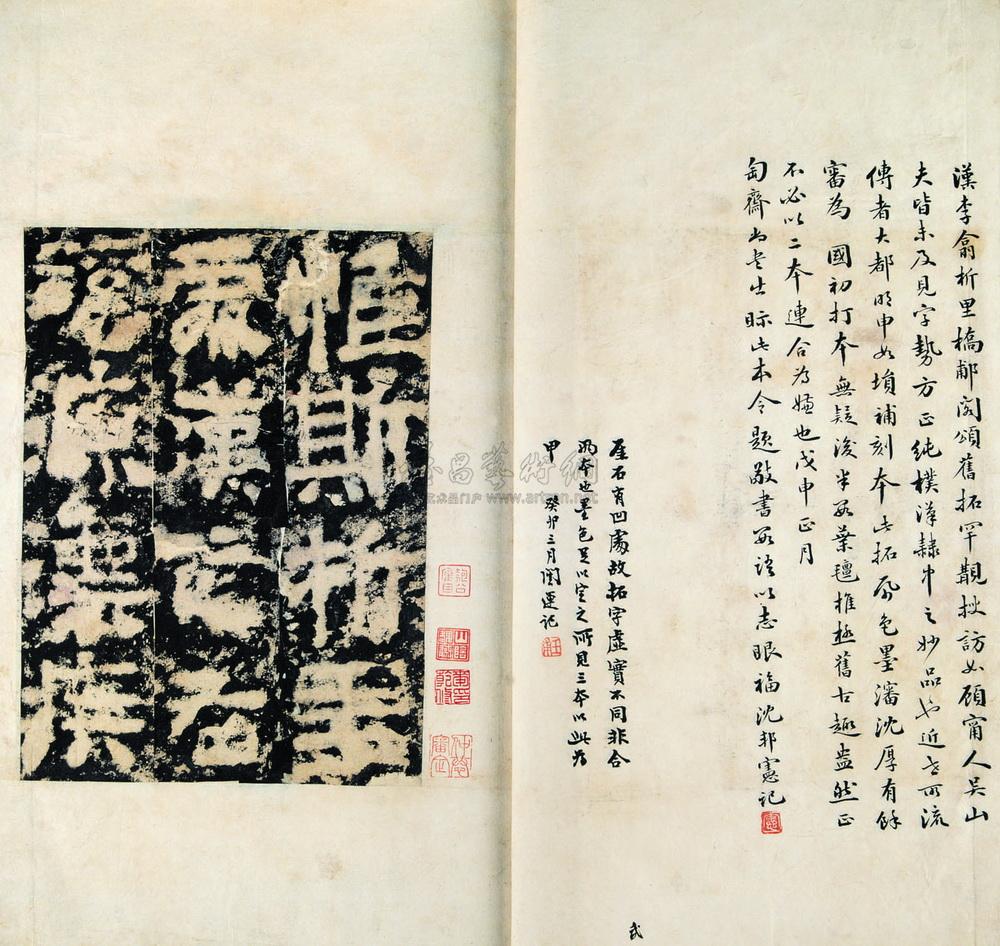 漢李翕析里橋郙閣頌舊拓罕覯搜訪如顧甯人吳山
夫皆未及見字勢方正純樸漢隸中之妙品也近世所流
傳者大都明申如塤補刻本此拓紙色墨瀋沈厚有餘
審為國初打本無疑後半數葉氊椎極舊古趣盎然正
不必以二本連合為嫌也戊申正月
匋齋尚書出眎此本令題敬書數語以志眼福沈邦憲記
厓石有凹處故拓字虛實不同非合
兩本也墨色足以定之所見三本以此為
甲 癸卯三月闓運記
惟斯析里
處漢之右
谿源漂疾
山陰
弍
www.artxun.net